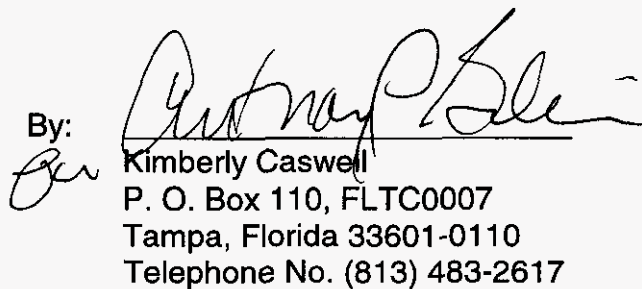 By: Anthony P
for Kimberly Caswell
P. O. Box 110, FLTC0007
Tampa, Florida 33601-0110
Telephone No. (813) 483-2617